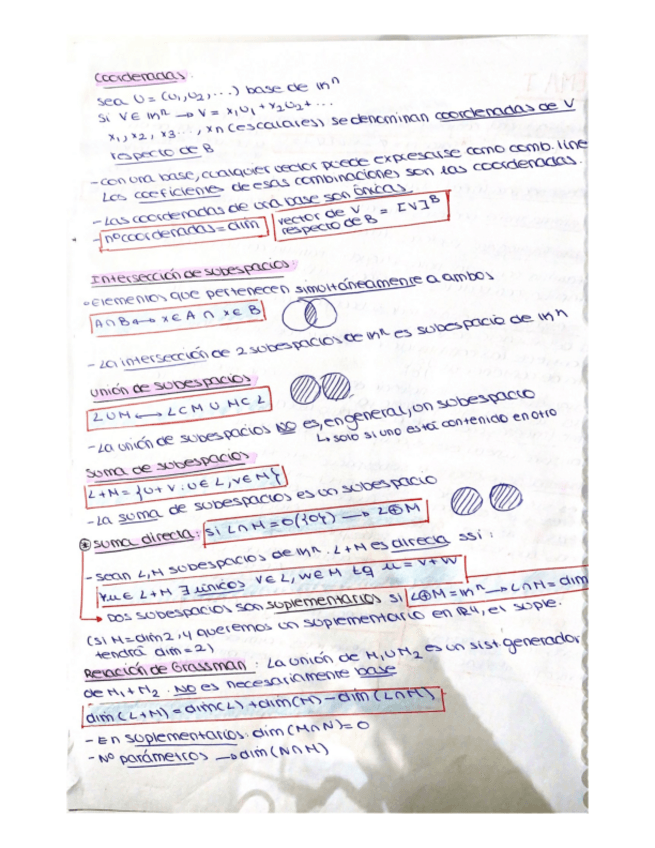 Coordenadas:
sea U = (u1, u2, ...) base de mⁿ
si V ∈ mⁿ → V = x1u1 + x2u2 + ...
x1, x2, x3..., xn (escalares) se denominan coordenadas de V
respecto de B
- con una base, cualquier vector puede expresarse como comb. line
Los coeficientes de esas combinaciones son las coordenadas.
- Las coordenadas de una base son únicas
- nº coordenadas = dim vector de V respecto de B = [V]B
Intersección de subespacios:
• Elementos que pertenecen simultáneamente a ambos
A∩B ↔ x∈A ∩ x∈B
- La intersección de 2 subespacios de mⁿ es subespacio de mⁿ
Unión de subespacios
L∪M ↔ L⊂M ∪ M⊂L
- La unión de subespacios NO es, en general, un subespacio
↳ solo si uno está contenido en otro
Suma de subespacios
L+M = {u+v : u∈L, v∈M}
- La suma de subespacios es un subespacio
* Suma directa: si L∩M = 0({0}) → L⊕M
- Sean L, M subespacios de mⁿ. L+M es directa ssi:
∀u∈L+M ∃ únicos v∈L, w∈M tq u = v+w
→ Dos subespacios son suplementarios si L⊕M = mⁿ → L∩M = dim
(si M=dim2, y queremos un suplementario en R4, el suple.
tendrá dim=2)
Relación de Grassman: La unión de M1 U M2 es un sist. generador
de M1+M2. NO es necesariamente base
dim(L+M) = dim(L) + dim(M) - dim(L∩M)
- En suplementarios: dim(M∩N) = 0
- Nº parámetros → dim(N∩M)